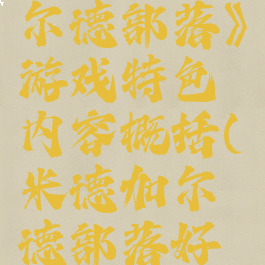 尔德部落》
游戏特色
内容概括(
米德加尔
德部落好